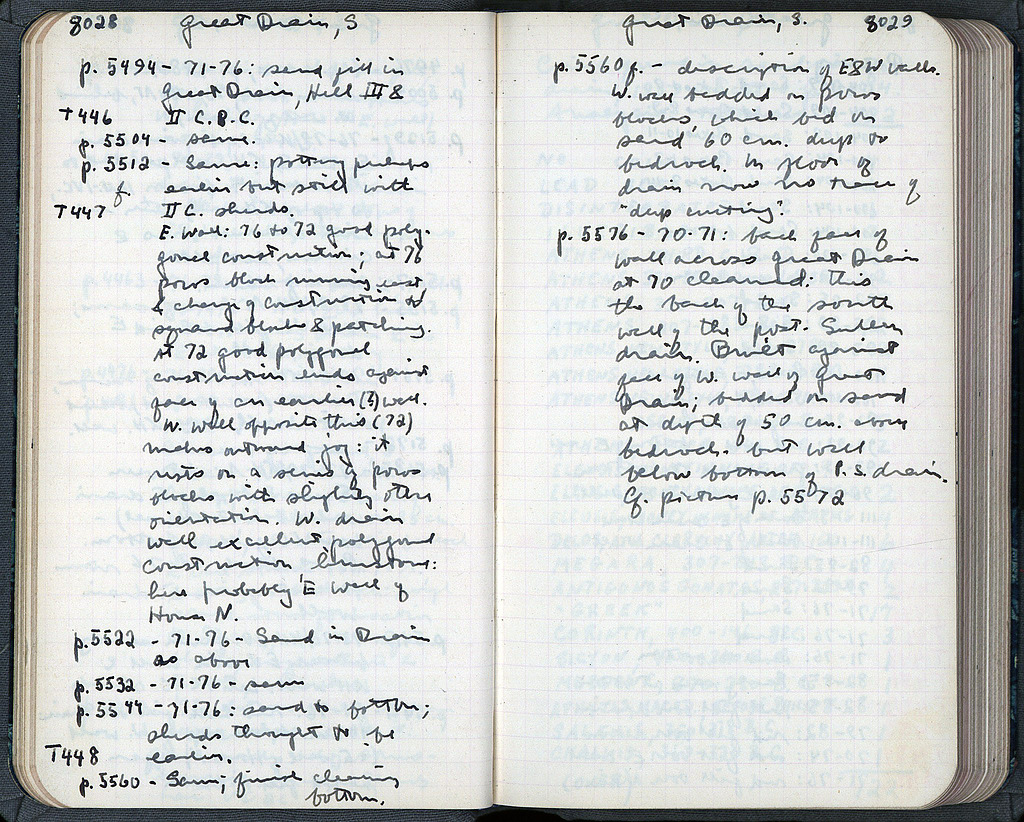 8028 Great Drain, S
p. 5494 - 71-76: sand fill in
Great Drain, Hell III &
T446 II C. B.C.
p. 5504 - same.
p. 5512 - Same: pottery perhaps
f earlier but still with
T447 II C. sherds.
E. Wall: 76 to 72 good poly-
gonal construction; at 76
poros block running east
& change of construction to
squared blocks & patching.
At 72 good polygonal
construction ends against
face of an earlier (?) wall.
W. Wall opposite this (72)
makes outward jog: it
rests on a series of poros
blocks with slightly other
orientation. W. drain
wall excellent polygonal
construction limestone:
here probably E wall of
House N.
p. 5522 - 71-76 - Sand in Drain
as above
p. 5532 - 71-76 - same
p. 5544 - 71-76: sand to bottom;
sherds thought to be
T448 earlier.
p. 5560 - Same; finish cleaning
bottom.
Great Drain, S. 8029
p. 5560 f. - description of E & W walls.
W. wall bedded on poros
blocks which bed on
sand, 60 cm. deep to
bedrock. In floor of
drain now no trace of
"deep cutting".
p. 5576 - 70-71: back face of
wall across Great Drain
at 70 cleaned: this
the back of the south
wall of the post-Sullan
drain. Built against
face of W. wall of Great
Drain; bedded in sand
at depth of 50 cm. above
bedrock - but well
below bottom of P.S. drain.
Cf. picture p. 5572